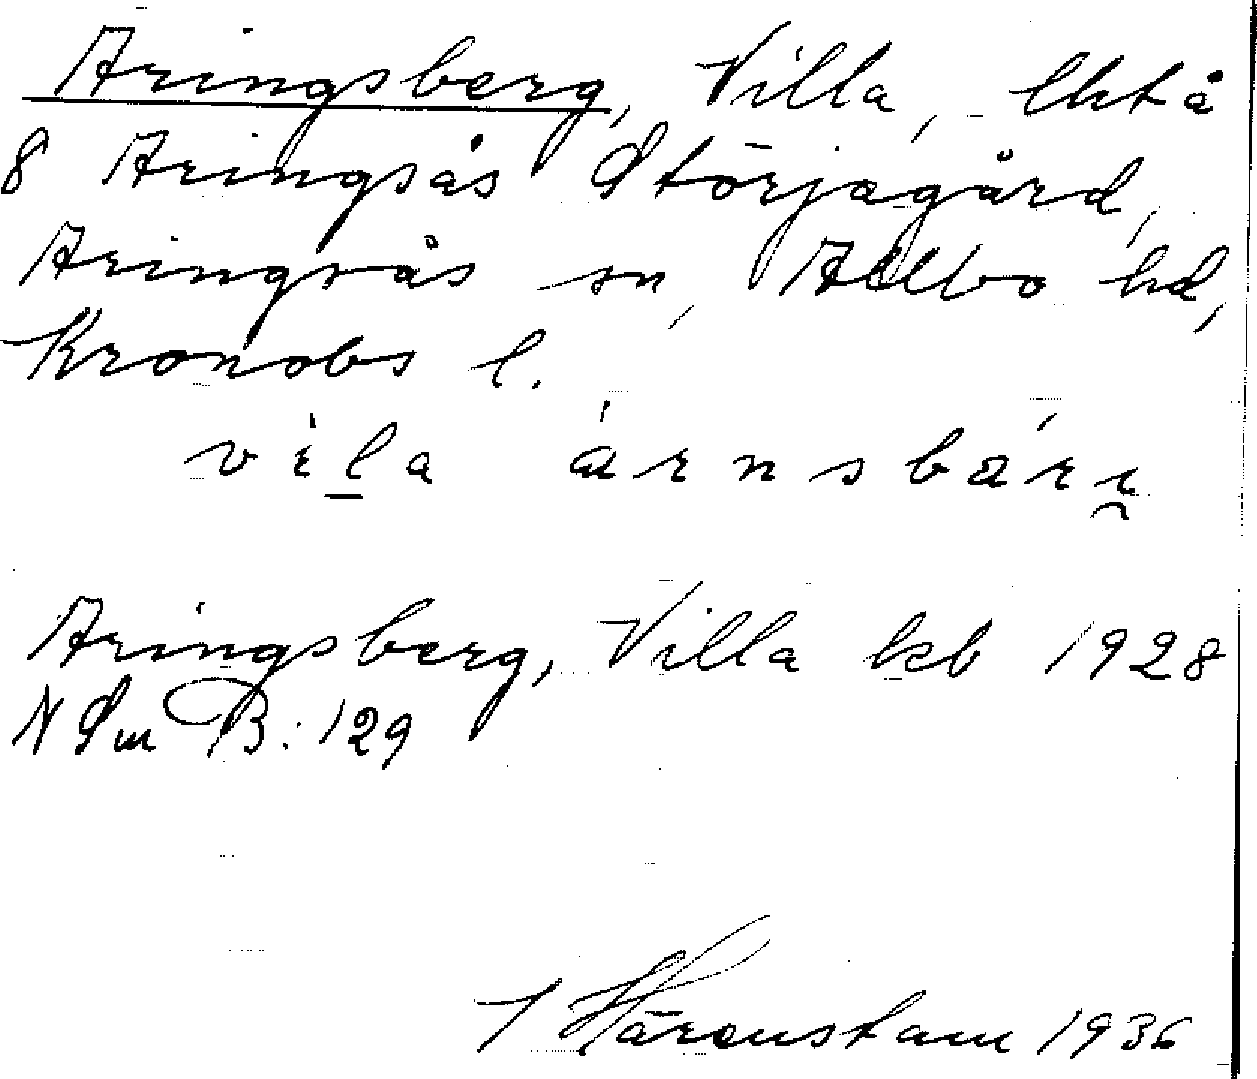 Aringsberg, Villa, lht å
8 Aringsås Störjagård,
Aringsås sn, Allbo hd,
Kronobs l.
Aringsberg, Villa kb 1928
N Sm B: 129
J Härenstam 1936